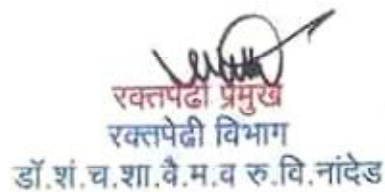 रक्तपेढी प्रमुख
रक्तपेढी विभाग
डॉ.शं.च.शा.वै.म.व रु.वि.नांदेड